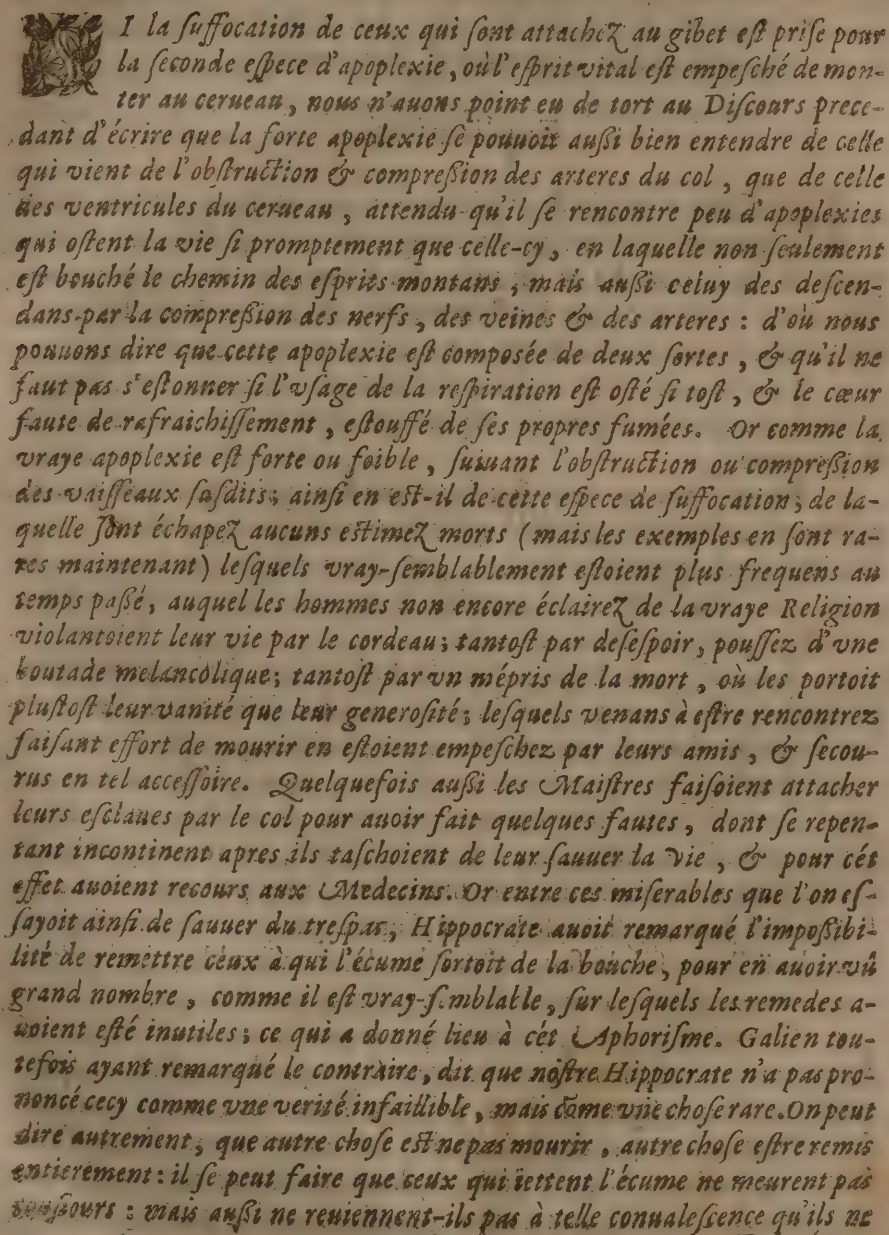 SI la ſuffocation de ceux qui ſont attachez au gibet eſt priſe pour
la ſeconde eſpece d'apoplexie, où l'eſprit vital eſt empeſché de mon-
ter au cerueau, nous n'auons point eu de tort au Diſcours prece-
dant d'écrire que la forte apoplexie ſe pouuoit auſſi bien entendre de celle
qui vient de l'obſtruction & compreſſion des arteres du col, que de celle
des ventricules du cerueau, attendu qu'il ſe rencontre peu d'apoplexies
qui oſtent la vie ſi promptement que celle-cy, en laquelle non ſeulement
eſt bouché le chemin des eſprits montans, mais auſſi celuy des deſcen-
dans par la compreſſion des nerfs, des veines & des arteres : d'où nous
pouuons dire que cette apoplexie eſt composée de deux ſortes, & qu'il ne
faut pas s'eſtonner ſi l'vſage de la reſpiration eſt oſté ſi toſt, & le cœur
faute de rafraichiſſement, eſtouffé de ſes propres fumées. Or comme la
vraye apoplexie eſt forte ou foible, ſuiuant l'obſtruction ou compreſſion
des vaiſſeaux ſuſdits; ainſi en eſt-il de cette eſpece de ſuffocation; de la-
quelle ſont échapez aucuns eſtimez morts (mais les exemples en ſont ra-
res maintenant) leſquels vray-ſemblablement eſtoient plus frequens au
temps paſſé, auquel les hommes non encore éclairez de la vraye Religion
violantoient leur vie par le cordeau; tantoſt par deſeſpoir, pouſſez d'vne
boutade melancolique; tantoſt par vn mépris de la mort, où les portoit
pluſtoſt leur vanité que leur generoſité; leſquels venans à eſtre rencontrez
faiſant effort de mourir en eſtoient empeſchez par leurs amis, & ſecou-
rus en tel acceſſoire. Quelquefois auſſi les Maiſtres faiſoient attacher
leurs eſclaues par le col pour auoir fait quelques fautes, dont ſe repen-
tant incontinent apres ils taſchoient de leur ſauuer la vie, & pour cét
effet auoient recours aux Medecins. Or entre ces miſerables que l'on eſ-
ſayoit ainſi de ſauuer du treſpas, Hippocrate auoit remarqué l'impoſſibi-
lité de remettre ceux à qui l'écume ſortoit de la bouche, pour en auoir vû
grand nombre, comme il eſt vray-ſemblable, ſur leſquels les remedes a-
uoient eſté inutiles; ce qui a donné lieu à cét Aphoriſme. Galien tou-
tefois ayant remarqué le contraire, dit que noſtre Hippocrate n'a pas pro-
noncé cecy comme vne verité infaillible, mais cõme vne choſe rare. On peut
dire autrement, que autre choſe eſt ne pas mourir, autre choſe eſtre remis
entierement : il ſe peut faire que ceux qui iettent l'écume ne meurent pas
touſiours : mais auſſi ne reuiennent-ils pas à telle conualeſcence qu'ils ne